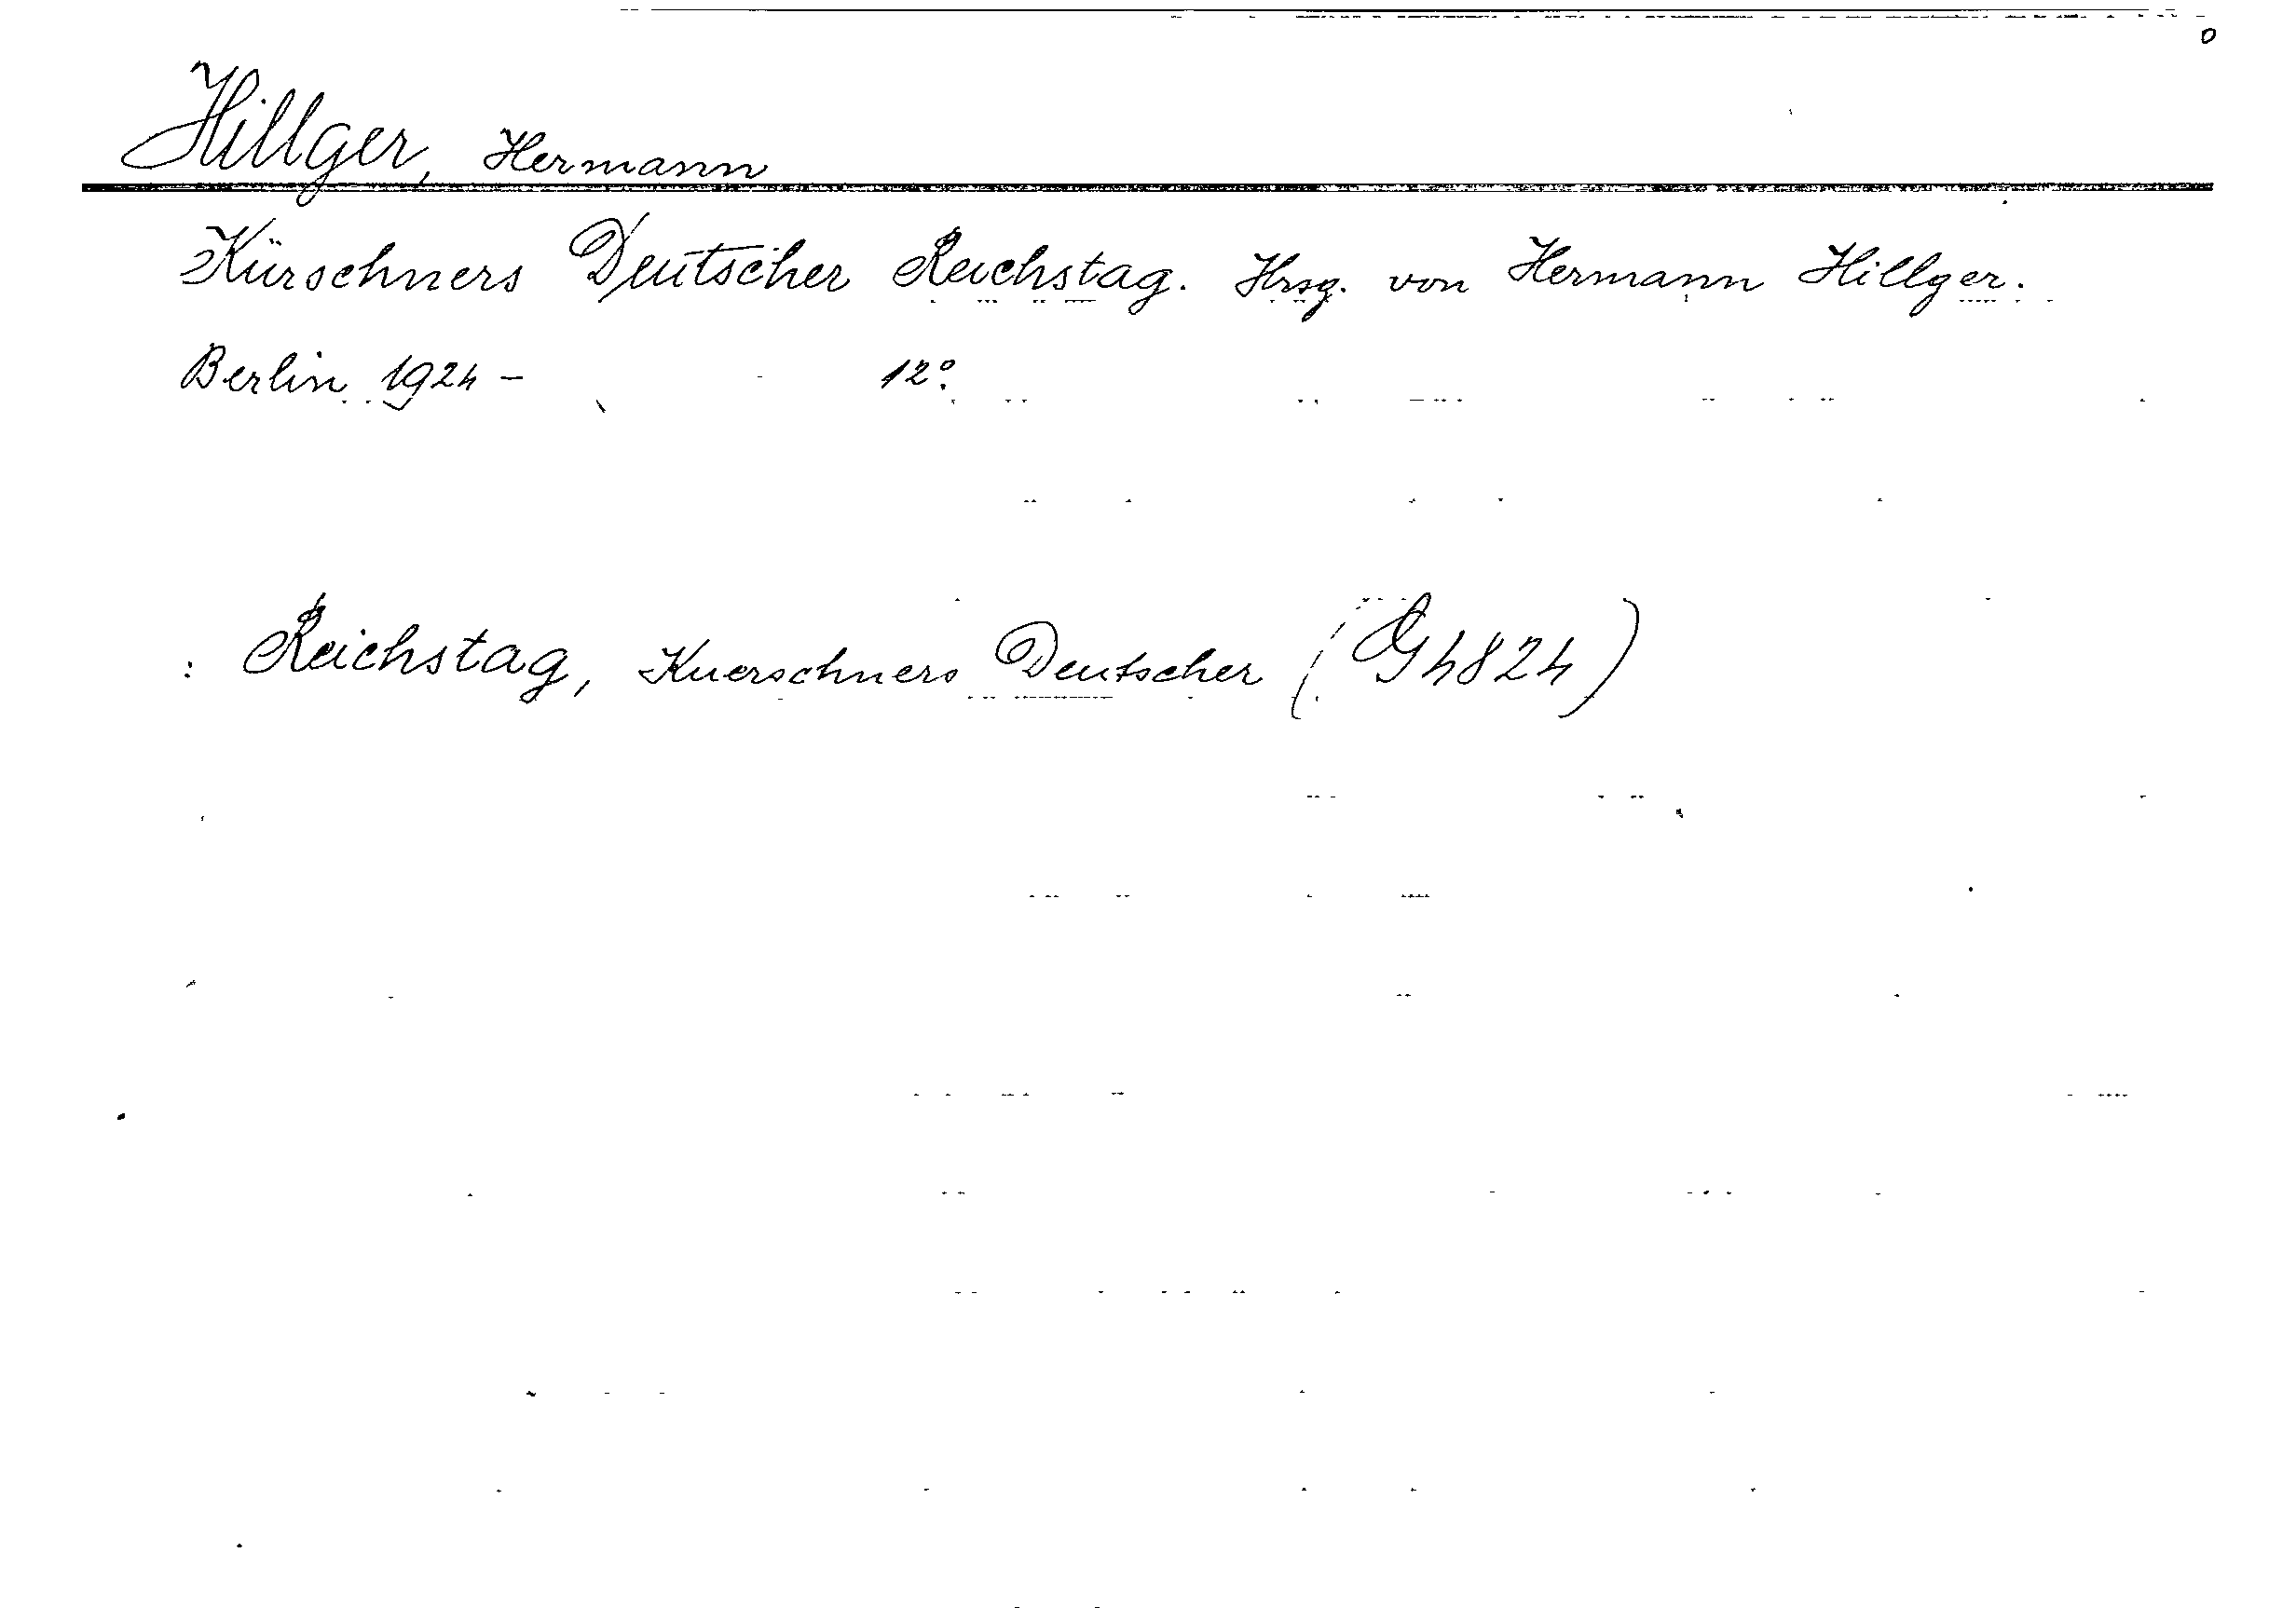 Hillger, Hermann
Kürschners Deutscher Reichstag. Hrsg. von Hermann Hillger.
Berlin 1924 - 12°.
: Reichstag, Kuerschners Deutscher (G 4824)